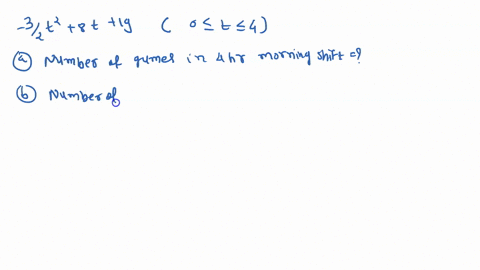 -3/2 t² + 8t + 19 ( 0 ≤ t ≤ 4)
(a) Number of gumes in 4 hr morning shift = ?
(b) Number of